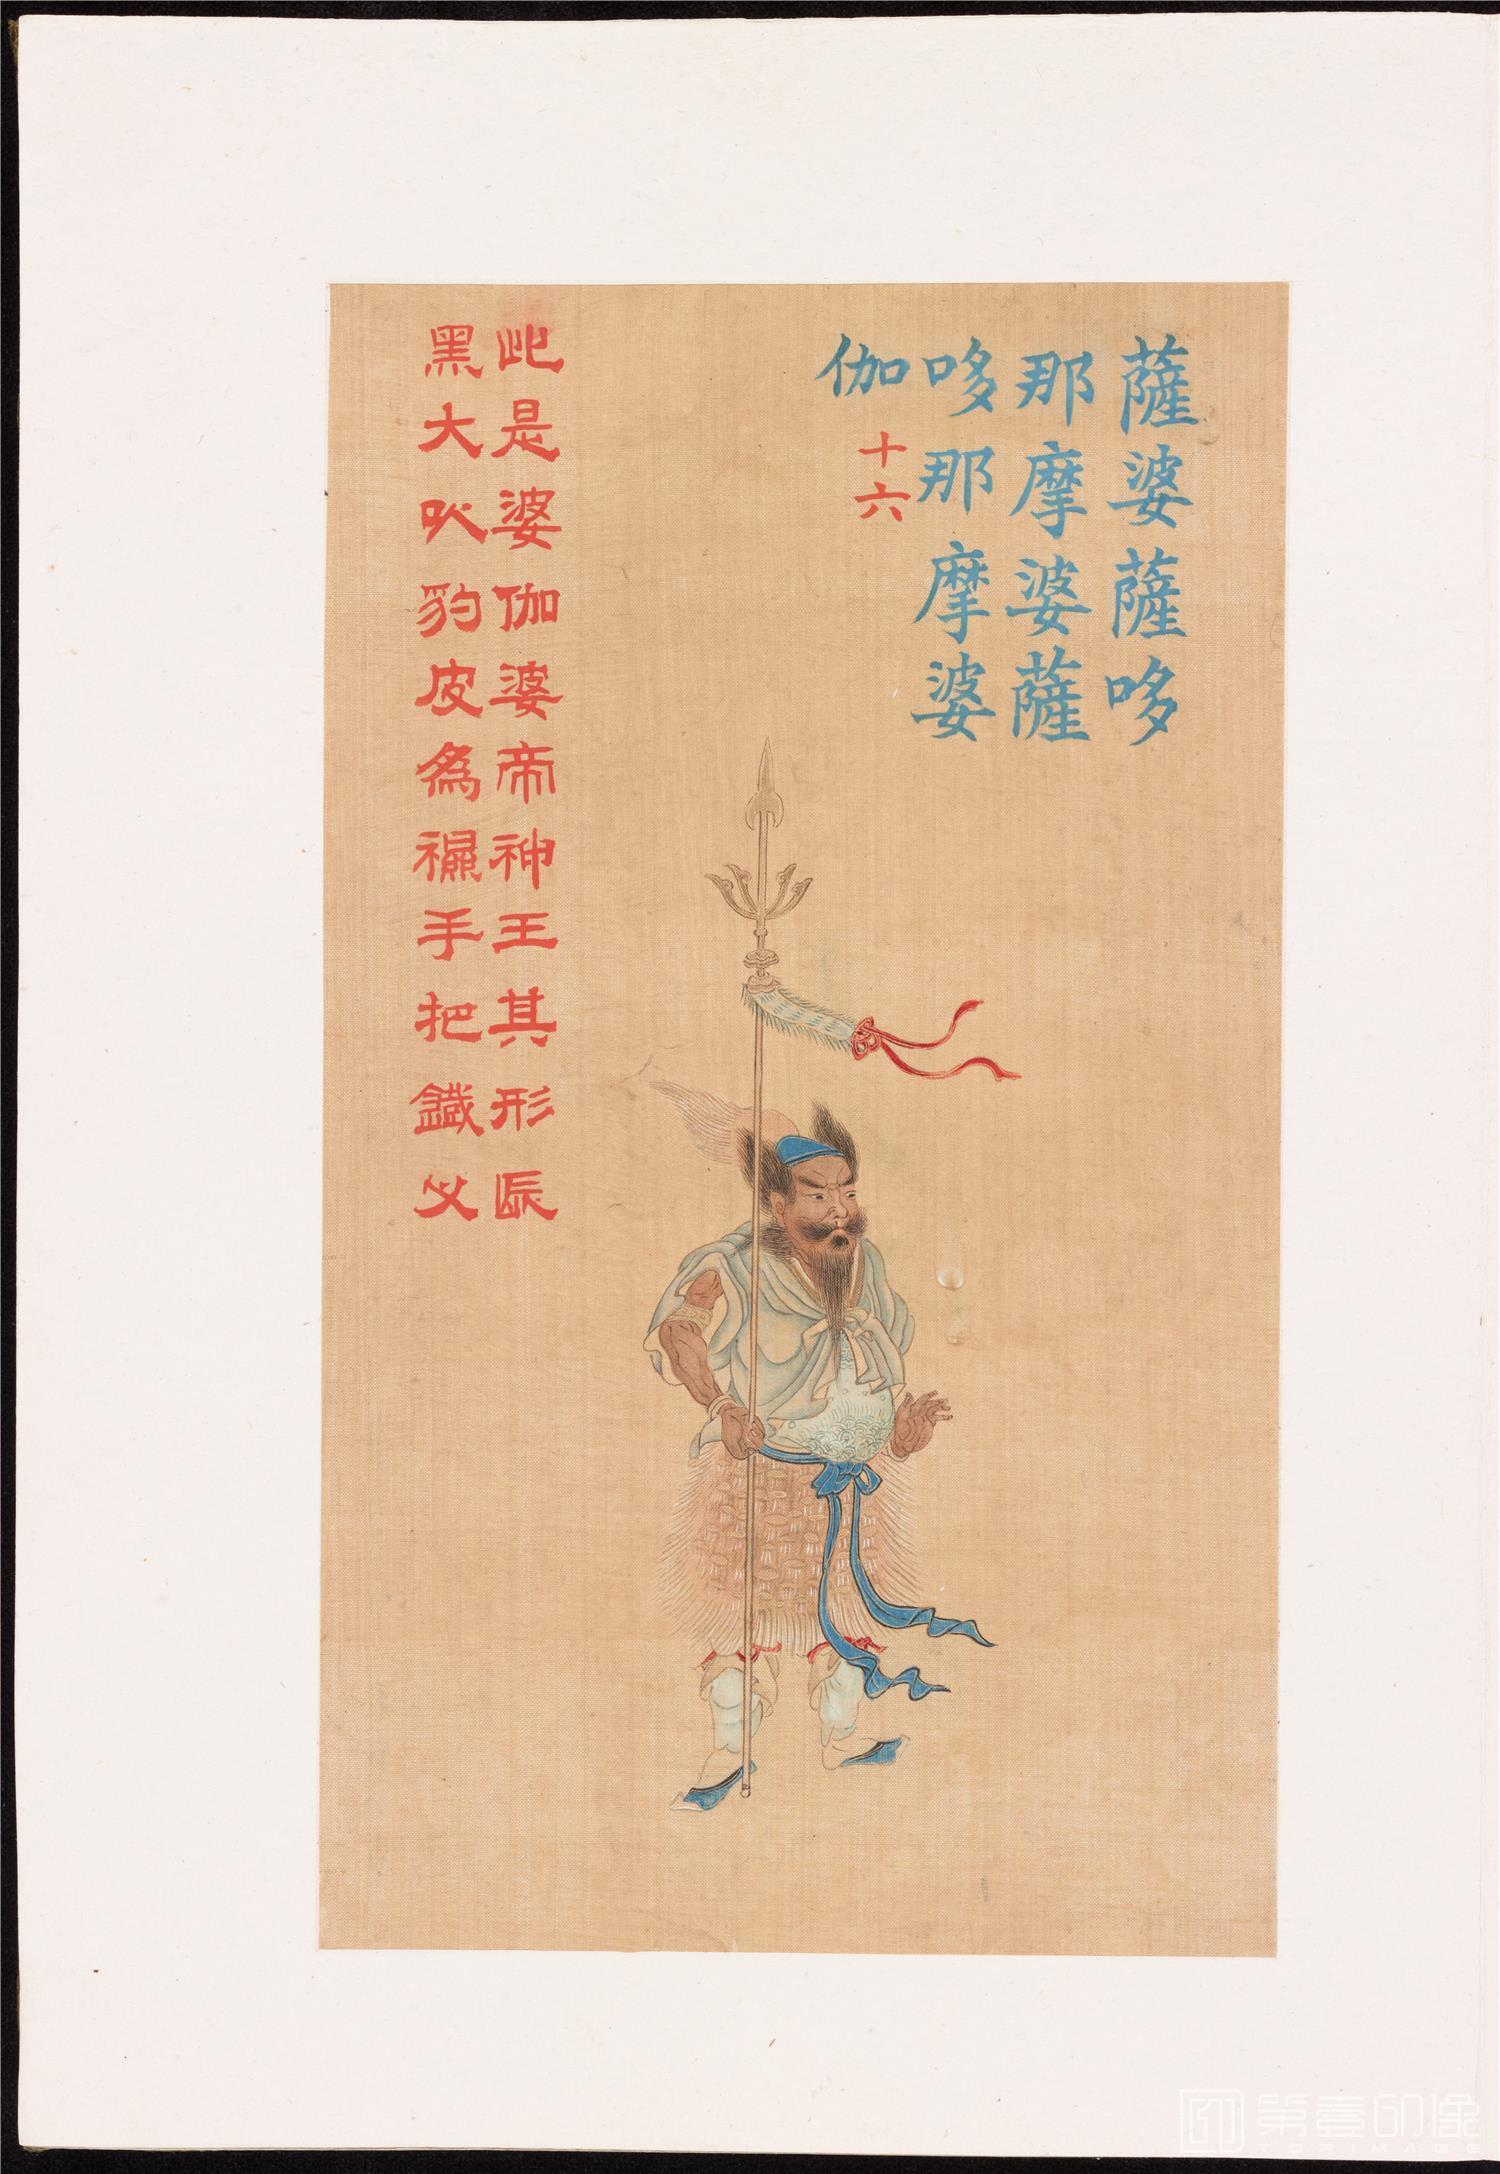 薩婆薩哆
那摩婆薩
哆那摩婆
伽 十六
此是婆伽婆帝神王其形
黑大以豹皮為裩手把鐵叉
第壹印像
TOPIMAGE